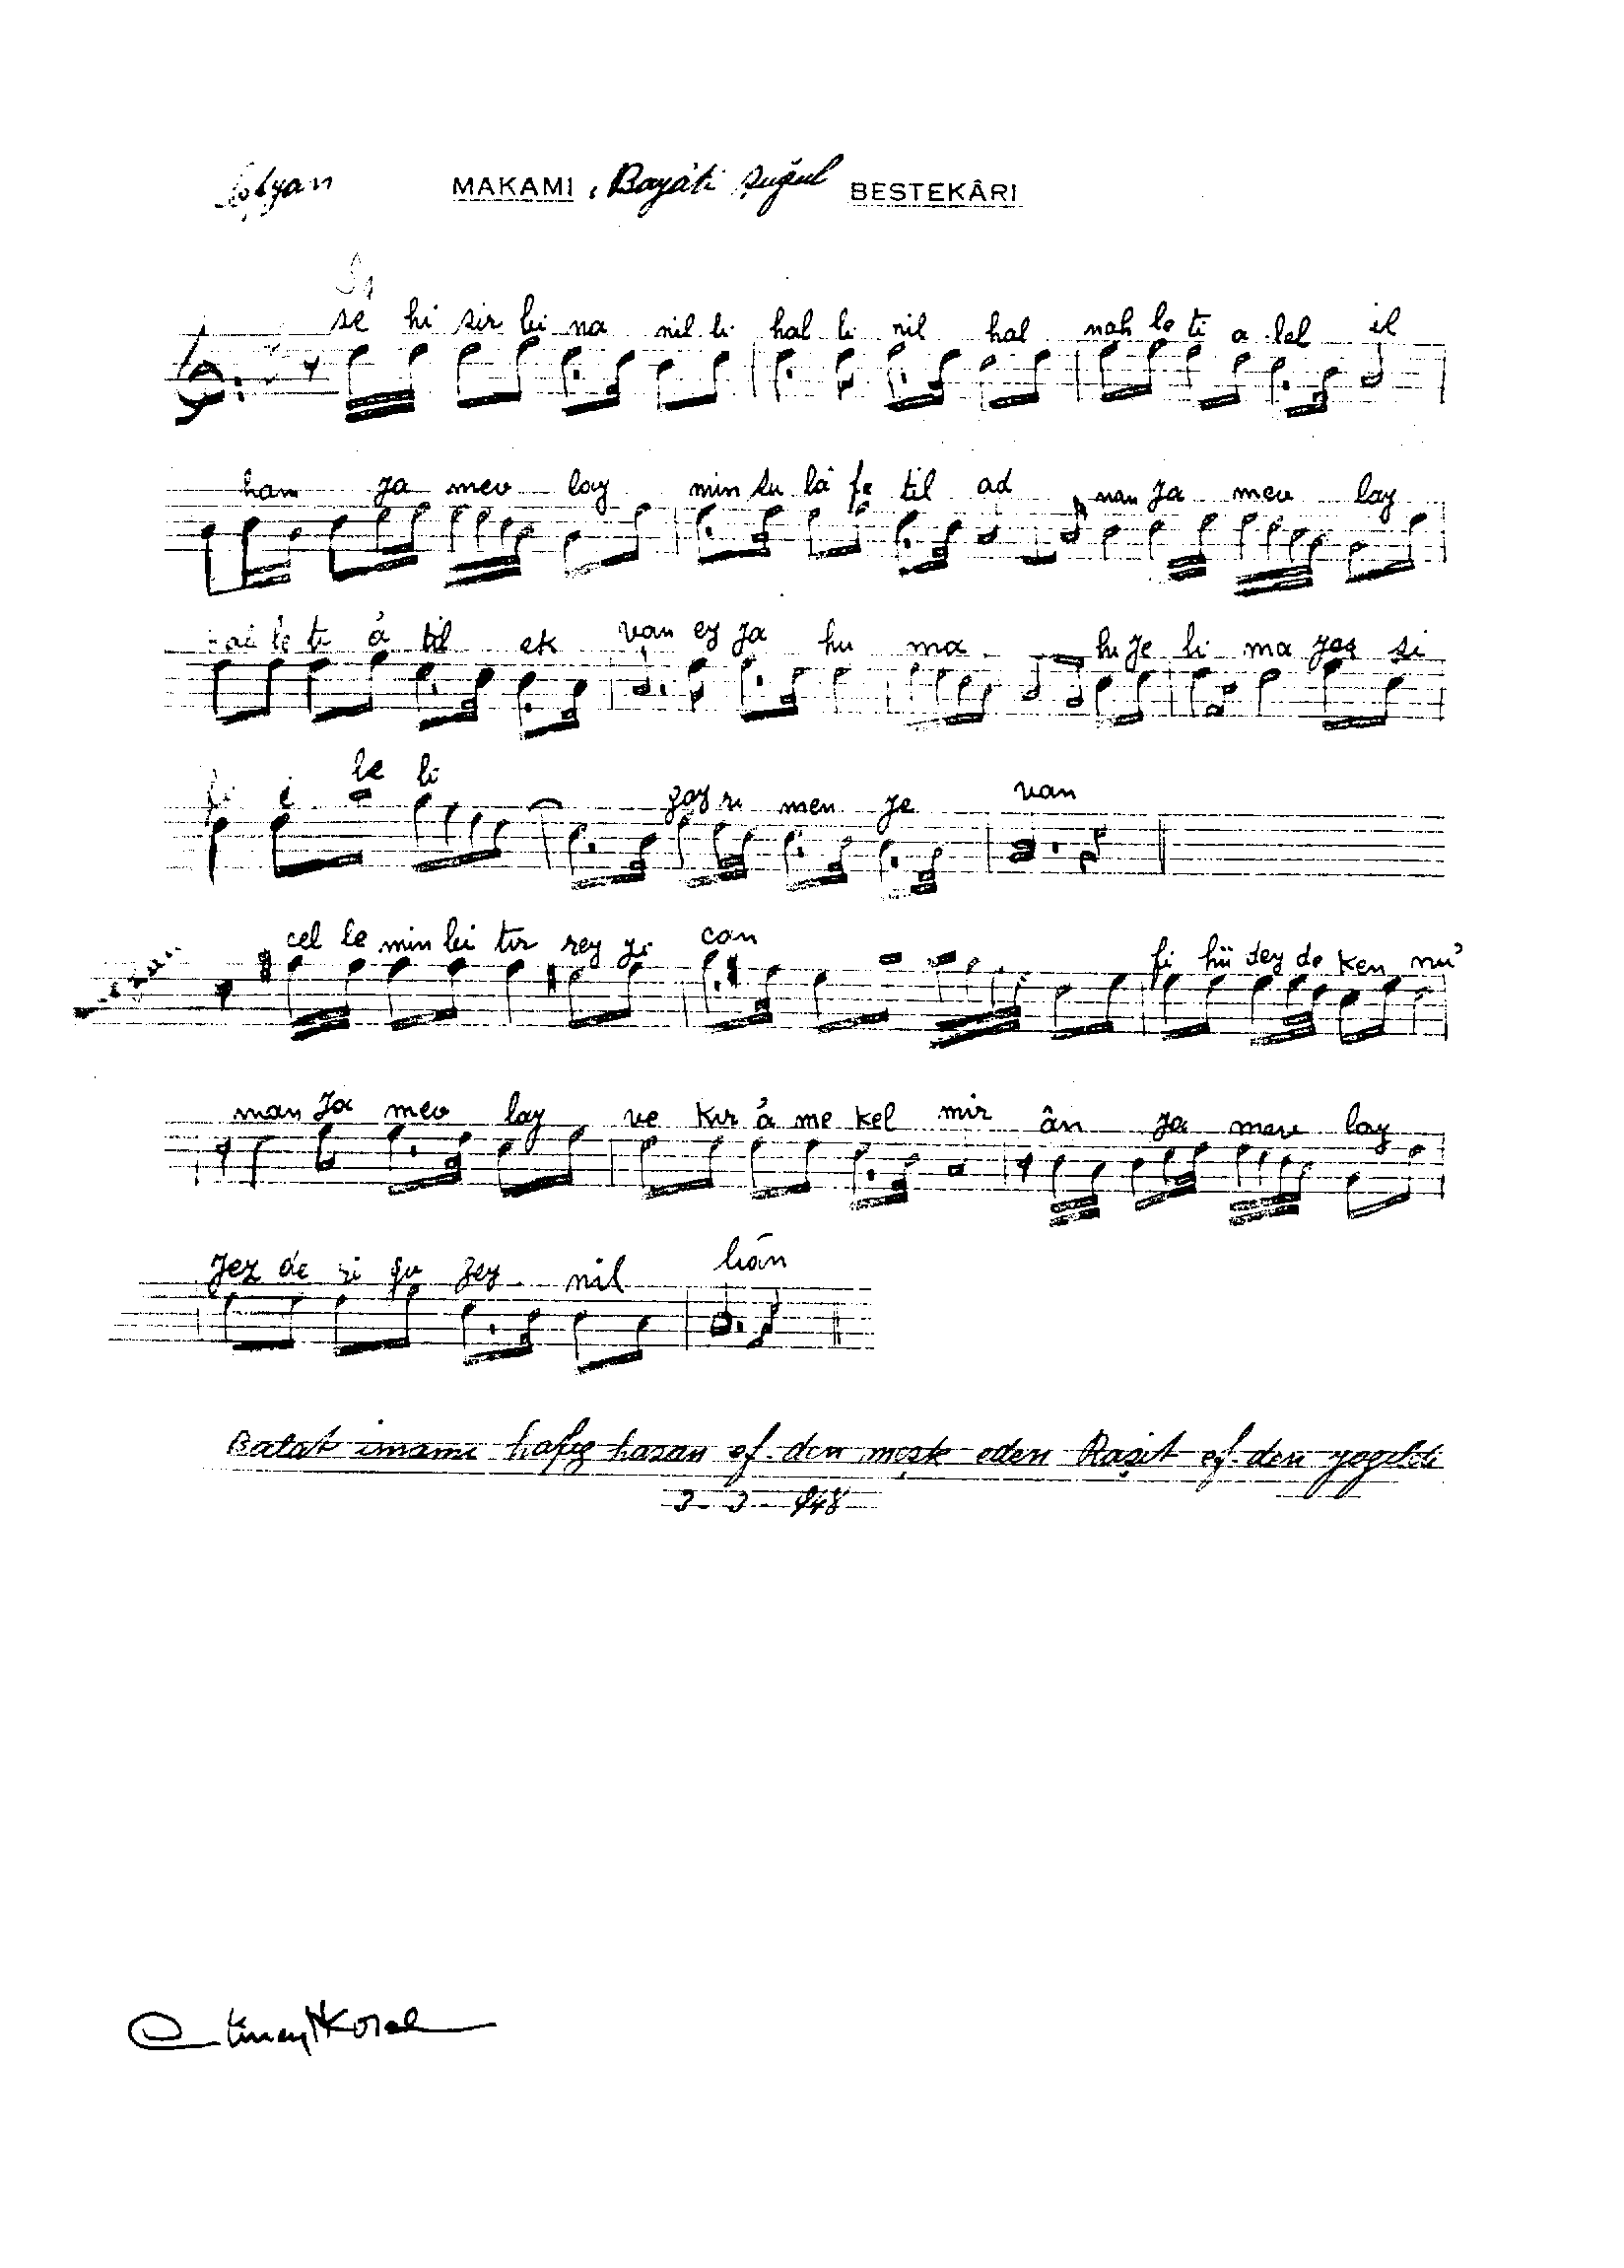 Sofyan MAKAMI : Bayâti Şuğul BESTEKÂRI
se hi sir bi na nil li hal li nil hal nah le ti a lel il
han ya mev lay min su lâ fe til ad nan ya mev lay
le ti â til ek van ey ya hu ma hu ye li ma yas si
i le li gay ri men ye van
cel le min bi tır rey yi can fi hü dey de ken nu'
man ya mev lay ve kır â me kel mir ân ya mev lay
yez de zi gu zey nil liân
Balat imamı hafız hasan ef. den meşk eden Raşit ef. den yazıldı
3 - 3 - 948